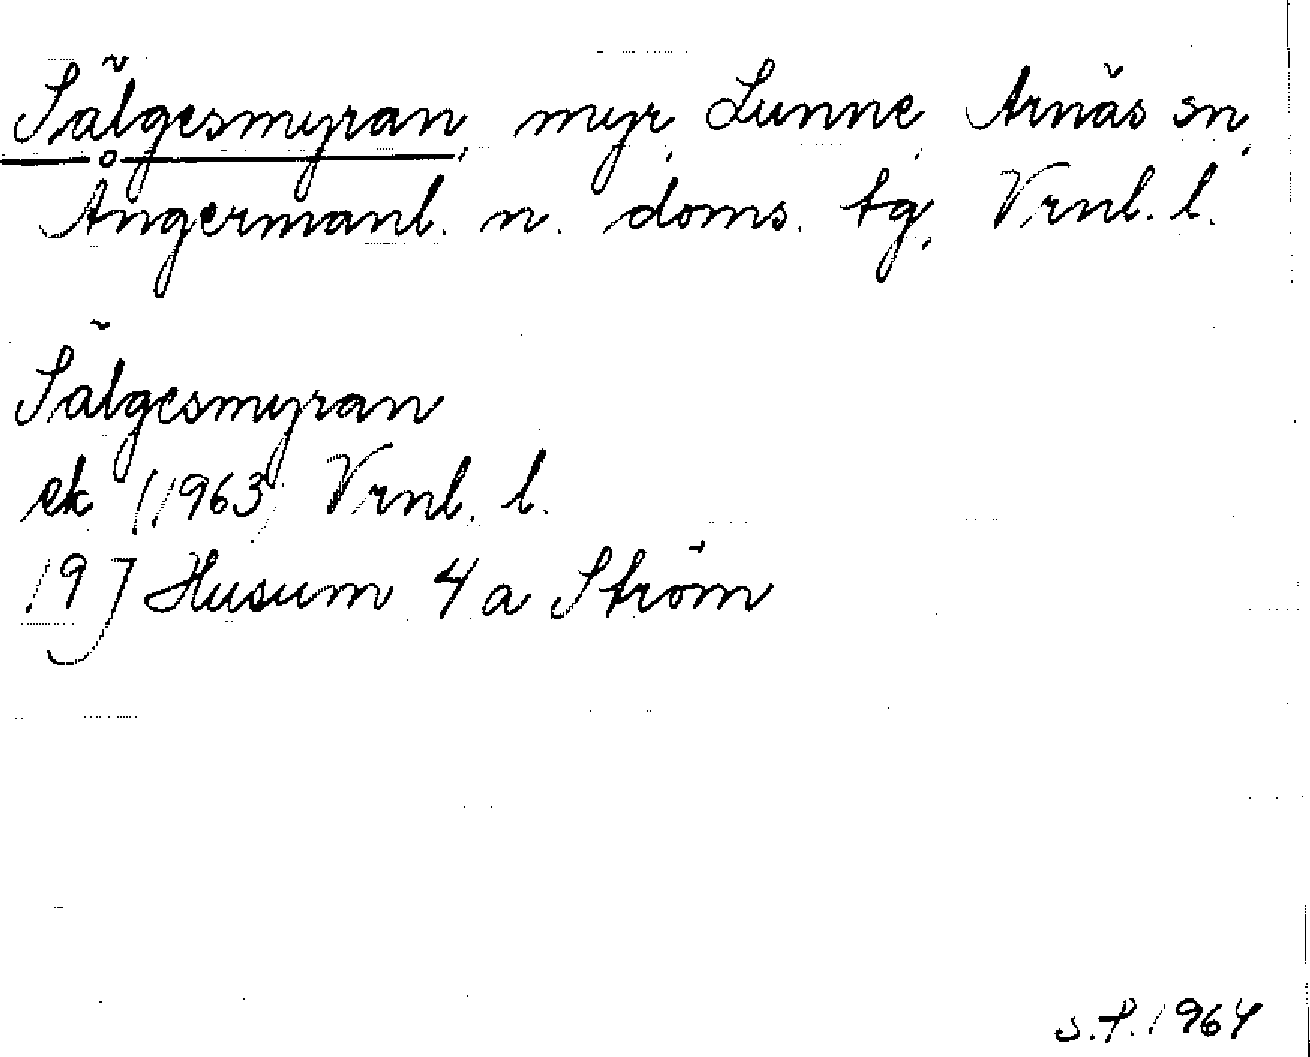 Sälgesmyran, myr, Lunne, Arnäs sn,
Ångermanl. n. doms. tg, Vrnl. l.
Sälgesmyran
ek (1963) Vrnl. l.
19 J Husum 4 a Ström
S.P. 1964